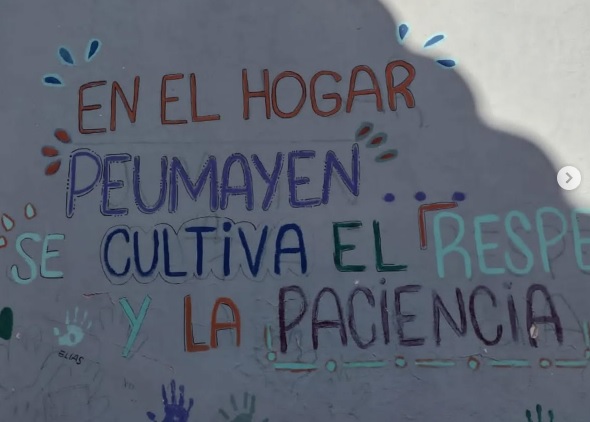 EN EL HOGAR
PEUMAYEN...
SE CULTIVA EL RESPE
Y LA PACIENCIA
ELIAS